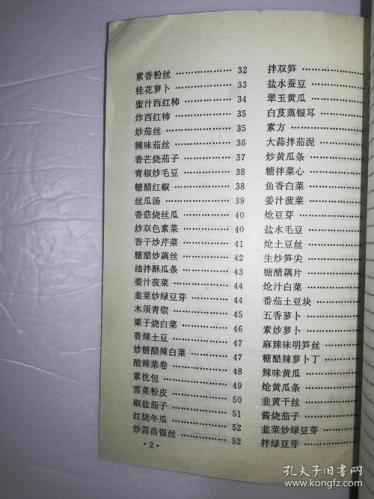 素香粉丝……………… 32
桂花萝卜……………… 33
蜜汁西红柿…………… 34
炸西红柿……………… 35
炒茄丝………………… 35
辣味茄丝……………… 36
香芒烧茄子…………… 37
青椒炒毛豆…………… 38
糖醋红椒……………… 38
丝瓜汤………………… 39
香菇烧丝瓜…………… 40
炒双色素菜…………… 40
香干炒芹菜…………… 41
糖醋炒藕丝…………… 42
油拌酥瓜条…………… 42
姜汁菠菜……………… 43
韭菜炒绿豆芽………… 44
木须青椒……………… 44
栗子烧白菜…………… 45
香辣土豆……………… 46
炒糖醋辣白菜………… 47
酸辣菜卷……………… 48
素枕包………………… 49
雪菜粉皮……………… 50
椒盐茄子……………… 51
红烧冬瓜……………… 52
炒蒜苗银丝…………… 52
·2·
拌双笋………
盐水蚕豆……
翠玉黄瓜……
白芨蒸银耳…
素方…………
大蒜拌茄泥…
炒黄瓜条……
糖拌菜心……
鱼香白菜……
姜汁菠菜……
炝豆芽………
盐水毛豆……
炝土豆丝……
生炒笋尖……
糖醋藕片……
炝汁白菜……
番茄土豆块…
五香萝卜……
素炒萝卜……
麻辣味明笋丝…
糖醋辣萝卜丁…
辣味黄瓜……
炝黄瓜条……
韭黄干丝……
酱烧茄子……
韭菜炒绿豆芽…
拌绿豆芽……
孔夫子旧书网